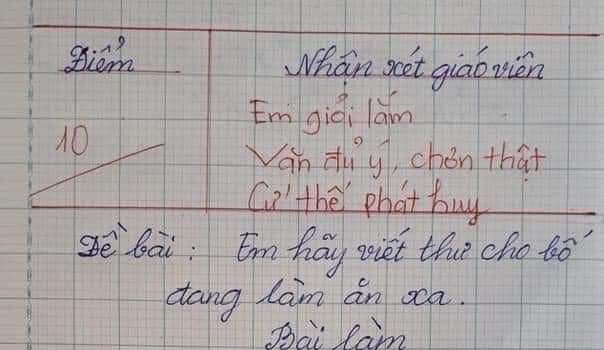 Điểm
Nhận xét giáo viên
10
Em giỏi lắm
Văn đủ ý, chơn thật
Cứ thế phát huy
Đề bài : Em hãy viết thư cho bố
đang làm ăn xa.
Bài làm